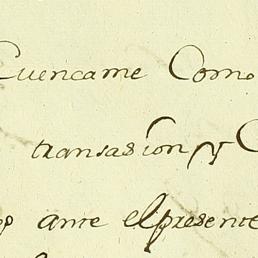 Cuencame Como
transasion y
ante el presente